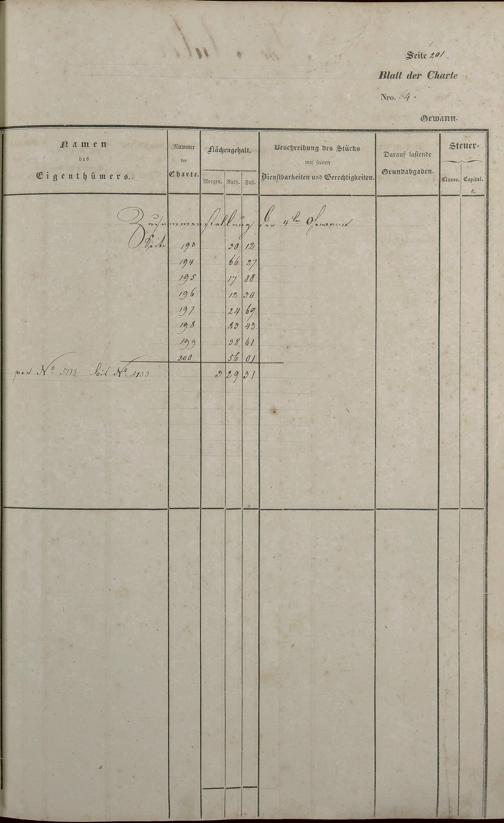 Seite 201
Blatt der Charte
Nro. 4.
Gewann.
Namen
des
Eigenthümers.
Nummer
der
Charte.
Flächengehalt.
Morgen. Ruth. Fuß.
Beschreibung des Stücks
mit seinen
Dienstbarkeiten und Gerechtigkeiten.
Darauf lastende
Grundabgaben.
Steuer-
Classe. Capital.
fl.
Zusammenstellung der 4ten Gewann
Seite 193 30 12
194 66 27
195 17 88
196 12 30
197 24 69
198 83 43
199 38 61
200 56 01
von No bis No 3 29 31